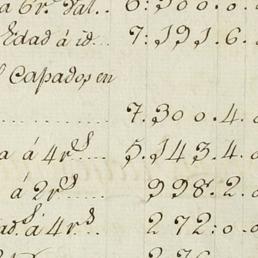 a 6 rs. Val.. 6:300.0.
Edad á id... 7:191.6.
Capados en
7.300.4.
a á 4 rs..... 5.143.4.
á 2 rs 998.2.
ad.s á 4 rs 272:0.